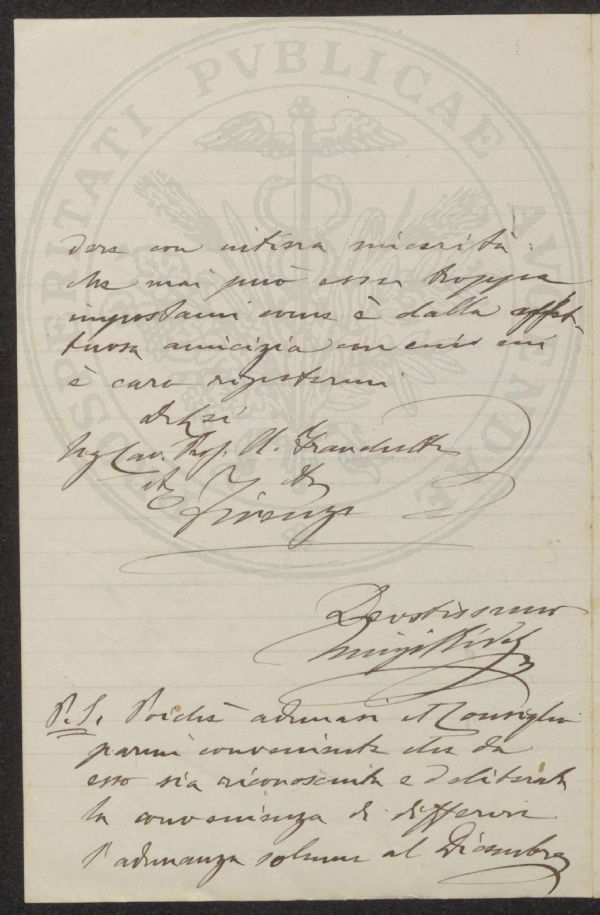 PROSPERITATI PVBLICAE AVGENDAE
dere con intiera sincerità:
che mai può esser troppa
come è dalla affet-
tuosa amicizia con cui mi
è caro
di Lei
Sig. Cav. Prof. A.
Firenze
Devotissimo
Luigi
P.S. Poichè adunasi il Consiglio
parmi conveniente che da
esso sia riconosciuta e deliberata
la convenienza di differire
l'adunanza solenne al Dicembre